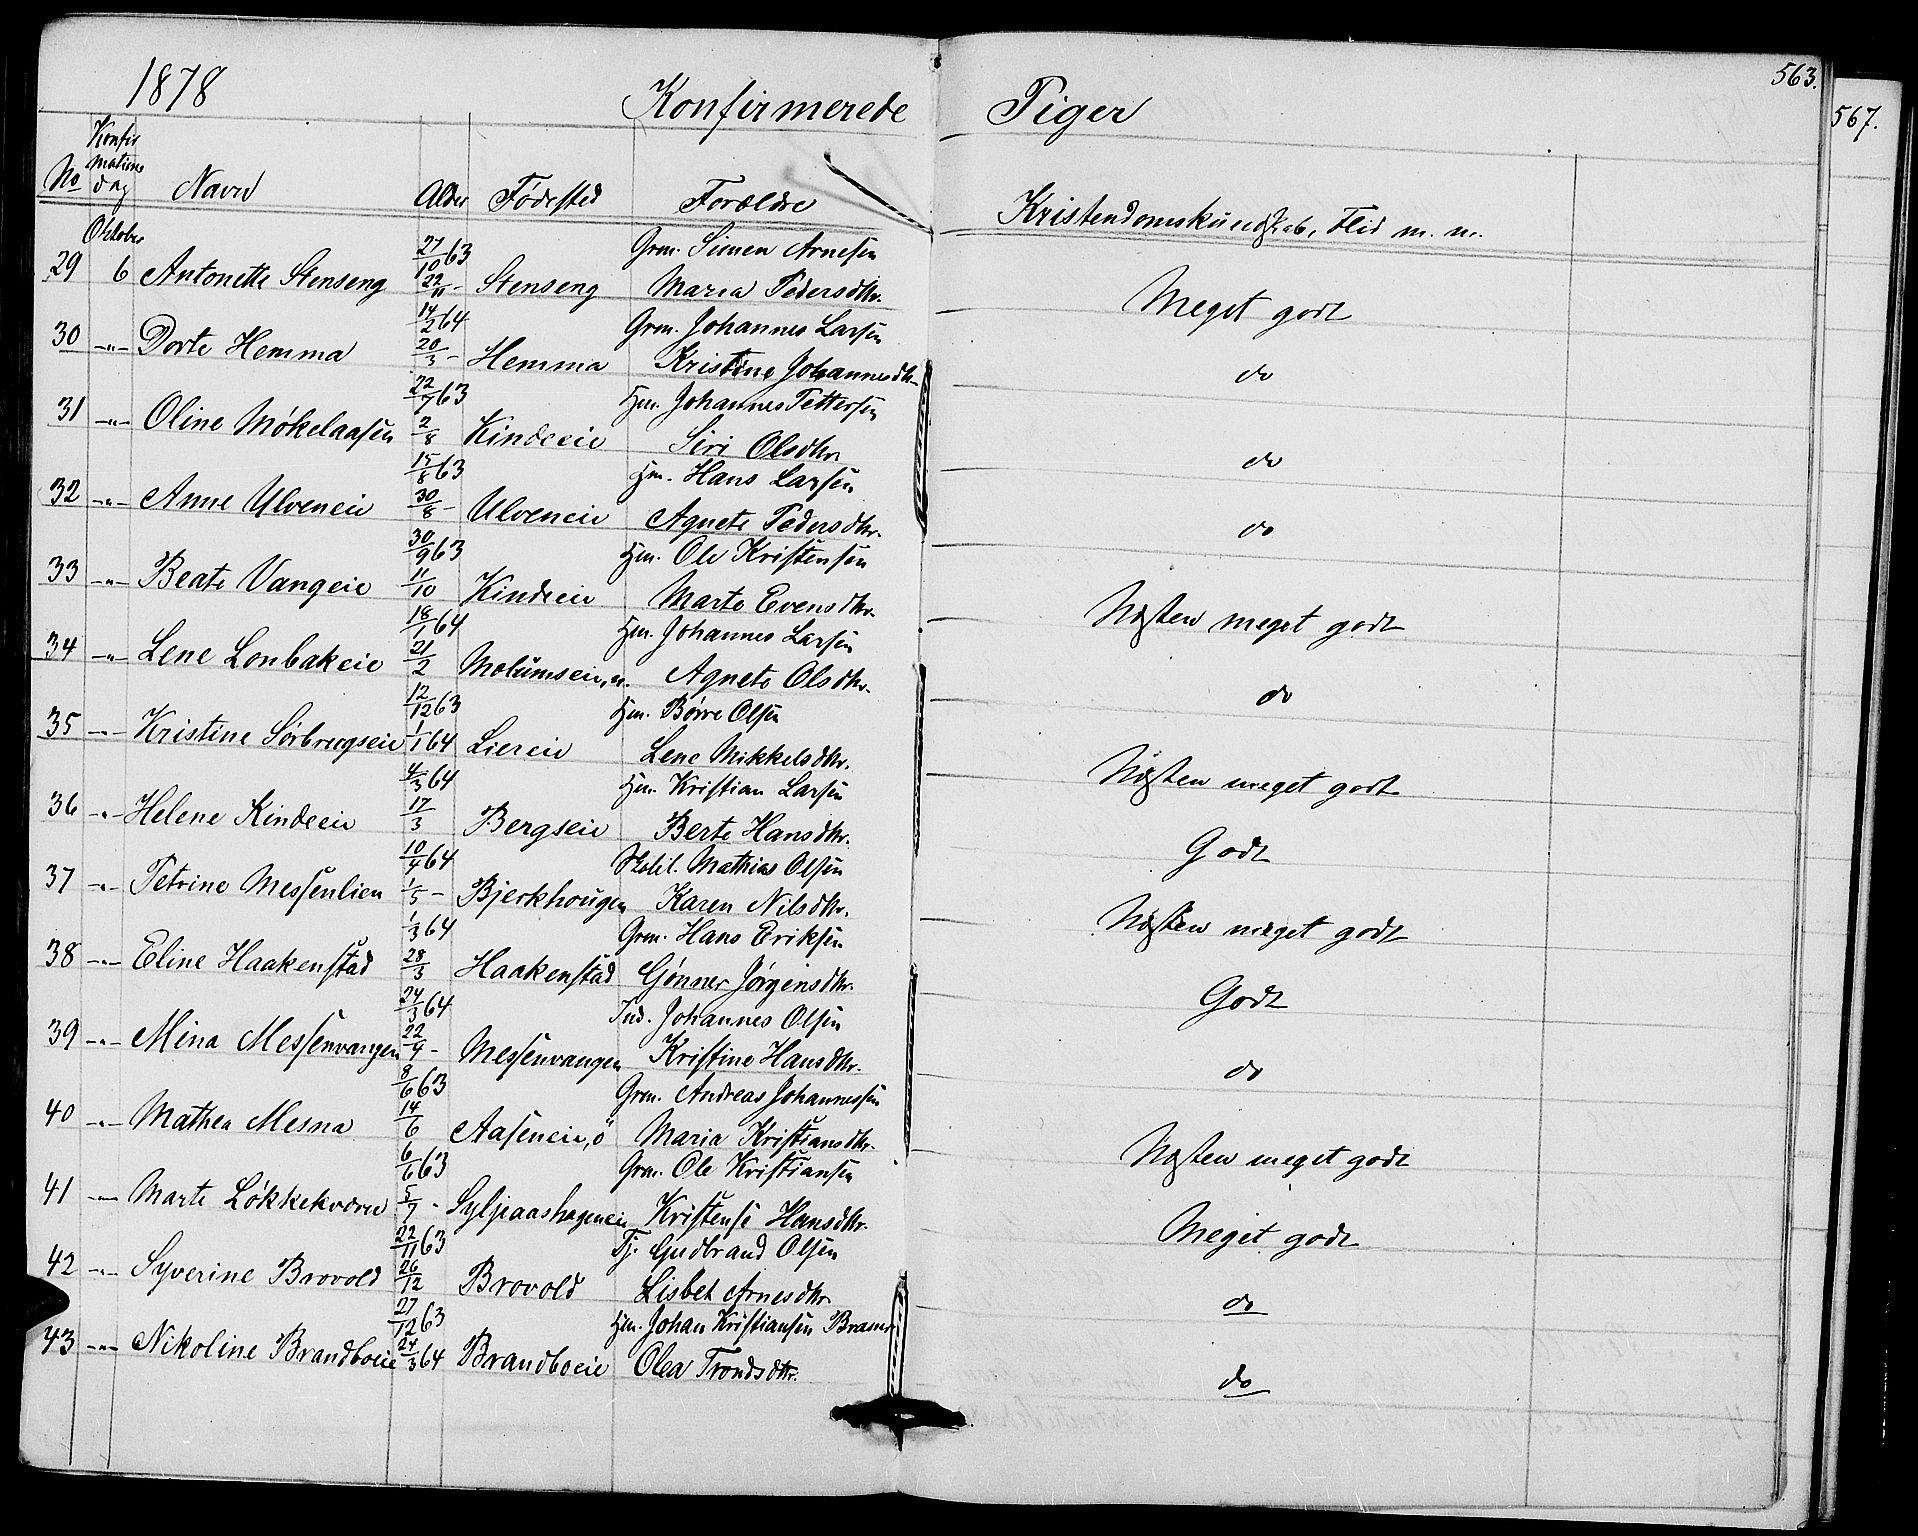 1878 Konfirmerede Piger 563.
567.
No Konfirmations dag Navn Alder Fødested Forældre Kristendomskundskab, Flid m. m.
Oktober
27/10 63 Grm. Simen Arnesen
29 6 Antonette Stenseng 22/11 - Stenseng Maria Pedersdtr. Meget godt
14/2 64 Grm. Johannes Larsen
30 -"- Dorte Hemma 20/3 - Hemma Kristine Johannesdtr. do
22/7 63 Hm. Johannes Pettersen
31 -"- Oline Møkelaasen 2/8 Kindeeie Siri Olsdtr. do
15/8 63 Hm. Hans Larsen
32 -"- Anne Ulveneie 30/8 - Ulveneie Agnete Pedersdtr. do
30/9 63 Hm. Ole Kristensen
33 -"- Beate Vangeie 11/10 Kindeeie Marte Evensdtr. Næsten meget godt
18/1 64 Hm. Johannes Larsen
34 -"- Lene Lonbakeie 21/2 Molumseie, n. Agnete Olsdtr. do
12/12 63 Hm. Børre Olsen
35 -"- Kristine Sørbrugseie 1/1 64 Liereie Lene Mikkelsdtr. Næsten meget godt
4/3 64 Hm. Kristian Larsen
36 -"- Helene Kindeeie 17/3 Bergseie Berte Hansdtr. Godt
10/4 64 Skolel. Mathias Olsen
37 -"- Petrine Messenlien 1/5 - Bjerkhougen Karen Nilsdtr. Næsten meget godt
1/3 64 Grm. Hans Eriksen
38 -"- Eline Haakenstad 28/3 Haakenstad Gønner Jørgensdtr. Godt
24/3 64 Ind. Johannes Olsen
39 -"- Mina Messenvangen 22/4 - Messenvangen Kristine Hansdtr. do
8/6 63 Grm. Andreas Johannessen
40 -"- Mathea Mesna 14/6 Aaseneie, ö Maria Kristiansdtr. Næsten meget godt
6/6 63 Grm. Ole Kristiansen
41 -"- Marte Løkkekværn 5/7 - Syljuaashageneie Kristense Hansdtr. Meget godt
22/11 63 Tj. Gudbrand Olsen
42 -"- Syverine Brovold 26/12 Brovold Lisbet Arnesdtr do
27/12 63 Hm. Johan Kristiansen
43 -"- Nikoline Brandboeie 24/3 64 Brandboeie Olea Trondsdtr. do